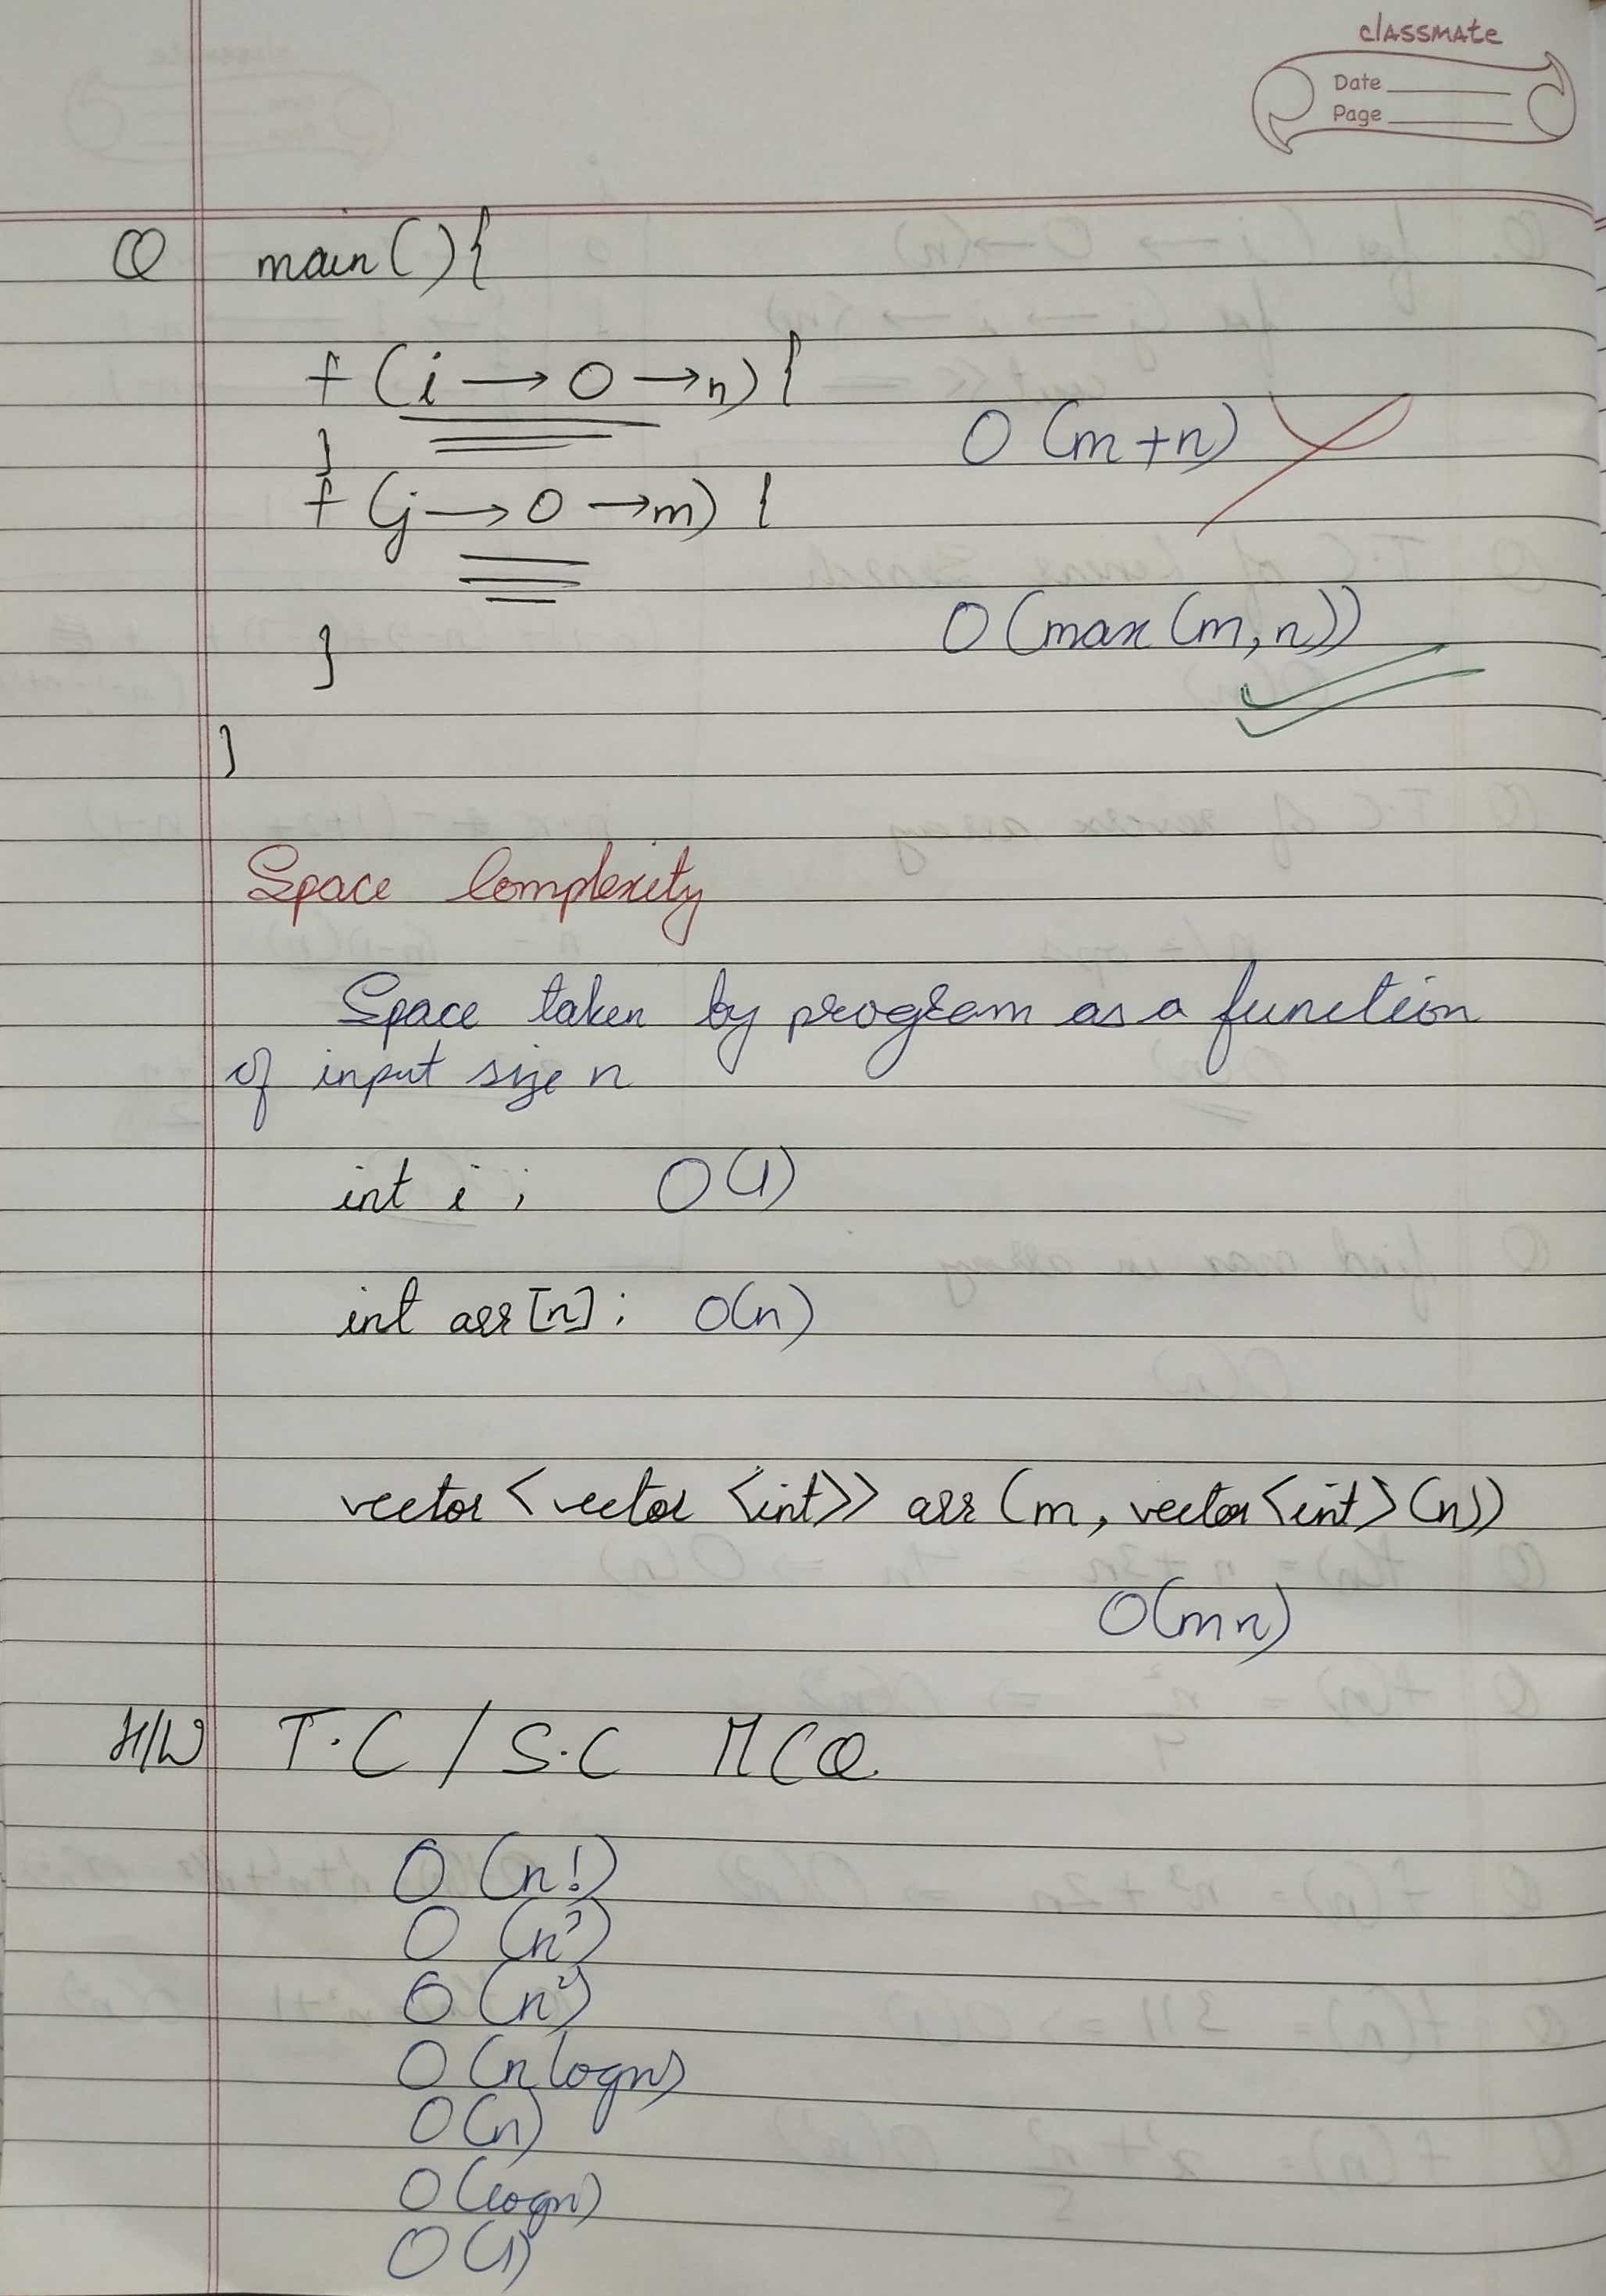 classmate
Date
Page
Q main(){
f (i → 0 → n) {
}
O (m+n)
f (j → 0 → m) {
O (max (m, n))
}
}
Space Complexity
Space taken by program as a function
of input size n
int i ; O(1)
int arr[n]; O(n)
vector <vector <int>> arr (m, vector<int>(n))
O(mn)
H/W T.C / S.C MCQ
O (n!)
O (n³)
O (n²)
O (n logn)
O (n)
O (logn)
O (1)